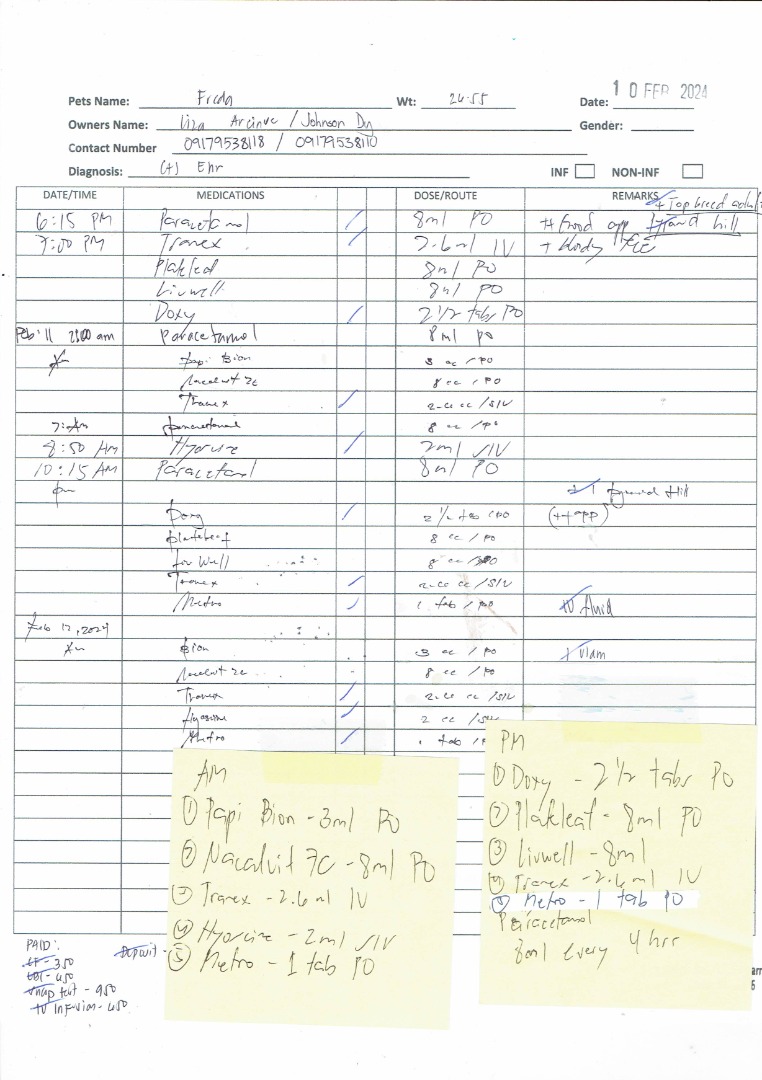 10 FEB 2024
Pets Name: Freda Wt: 26.55 Date:
Owners Name: Liza / Johnson Dy Gender:
Contact Number 09179538118 / 09179538110
Diagnosis: (+) Ehr INF NON-INF
DATE/TIME MEDICATIONS DOSE/ROUTE REMARKS
+ Top breed adult
6:15 PM Paracetamol 8ml PO + Good app
7:00 PM Tranex 2.6ml IV
Plakleaf 8ml PO
Livwell 8ml PO
Doxy 2 1/2 tabs PO
Feb. 11 Paracetamol 8ml po
Am Papi Bion 3 cc / PO
Nacalvit 7c 8 cc / PO
Tranex 2.6 cc / SIV
7: Am paracetamol 8 cc / po
8:50 AM Hyoscine 2ml SIV
10:15 AM Paracetamol 8ml PO
pm
Doxy 2 1/2 tab / PO (++ app)
8 cc / PO
Liv Well 8 cc / PO
Tranex 2.6 cc / SIV
Metro 1 tab / PO IV fluid
Feb 12, 2024
Am Bion 3 cc / PO
Nacalvit 7c 8 cc / PO
Tranex 2.6 cc / SIV
Hyoscine 2 cc / SIV
Metro 1 tab / P
AM
① Papi Bion - 3ml PO
② Nacalvit 7C - 8ml PO
③ Tranex - 2.6 ml IV
④ Hyoscine - 2ml SIV
⑤ Metro - 1 tab PO
PM
① Doxy - 2 1/2 tabs PO
② Plakleaf - 8ml PO
③ Livwell - 8ml
④ Tranex - 2.6 ml IV
⑤ Metro - 1 tab PO
Paracetamol
8ml every 4 hrs
PAID:
- 350
- 450
Snap test - 950
IV Infusion - 650
Deposit -